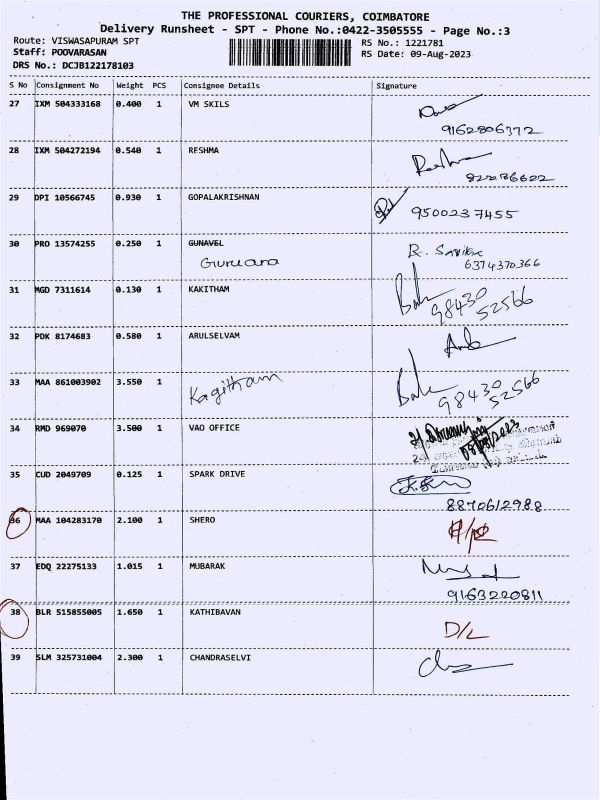 THE PROFESSIONAL COURIERS, COIMBATORE
Delivery Runsheet - SPT - Phone No.:0422-3505555 - Page No.:3
Route: VISWASAPURAM SPT RS No.: 1221781
Staff: POOVARASAN RS Date: 09-Aug-2023
DRS No.: DCJB122178103
S No Consignment No Weight PCS Consignee Details Signature
27 IXM 504333168 0.400 1 VM SKILS
9162806372
28 IXM 504272194 0.540 1 RESHMA Reshma
29 DPI 10566745 0.930 1 GOPALAKRISHNAN 9500237455
30 PRO 13574255 0.250 1 GUNAVEL R. Savitha
Gurucara 6374370366
31 MGD 7311614 0.130 1 KAKITHAM Bala 98430
52566
32 PDK 8174683 0.580 1 ARULSELVAM
33 MAA 861003902 3.550 1 Kagitham Bala 98430
52566
34 RMD 969070 3.500 1 VAO OFFICE
35 CUD 2049709 0.125 1 SPARK DRIVE
8870612988
36 MAA 104283170 2.100 1 SHERO
37 EDQ 22275133 1.015 1 MUBARAK
9163220811
38 BLR 515855005 1.650 1 KATHIBAVAN D/L
39 SLM 325731004 2.300 1 CHANDRASELVI